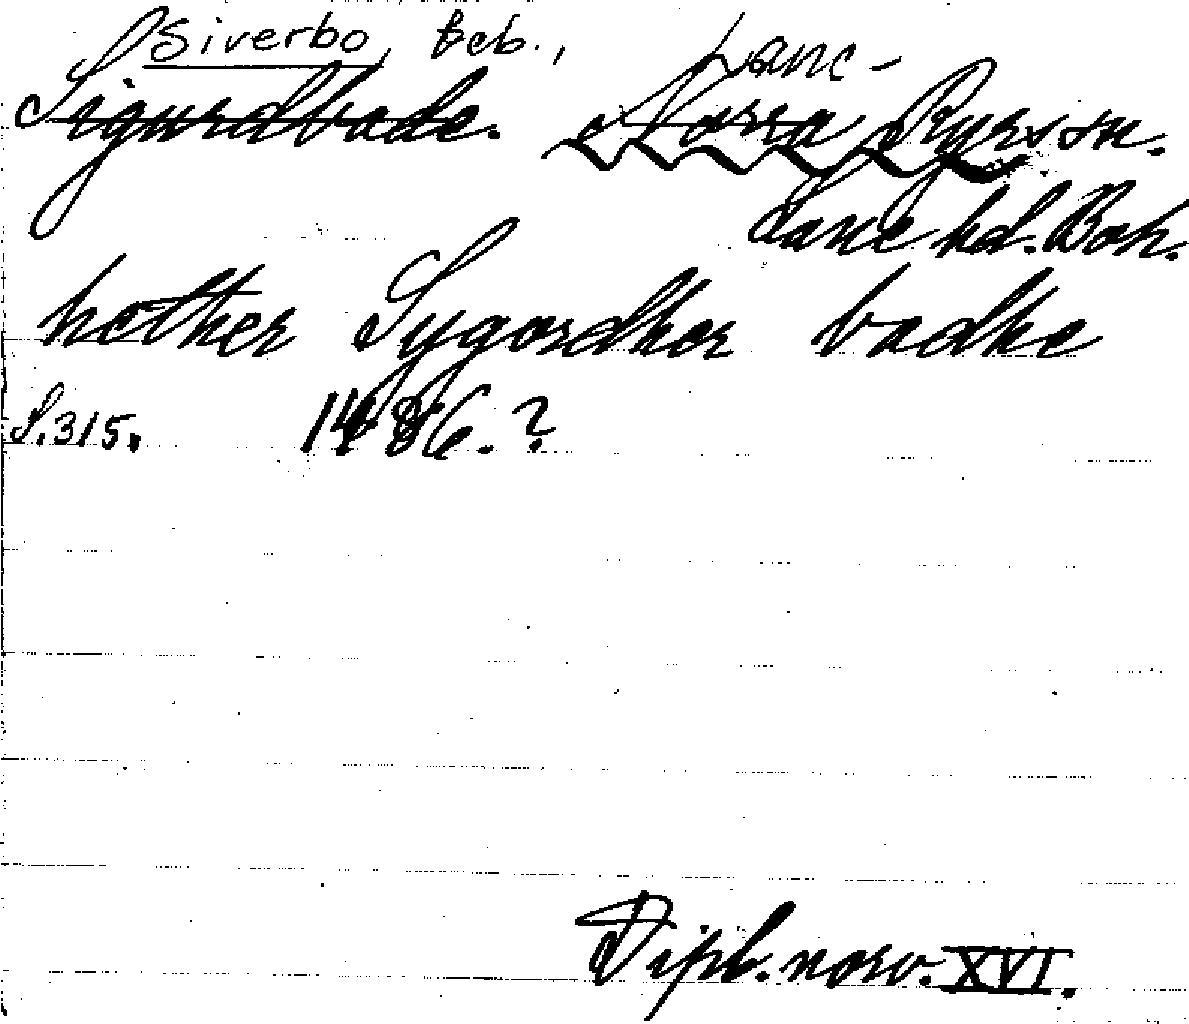 Siverbo, Beb., Lane-
Sigurdbade. Norra Ryrs sn.
Lane hd. Boh.
hether Sygordher badhe
S. 315. 1486. ?
Dipl. norv. XVI.